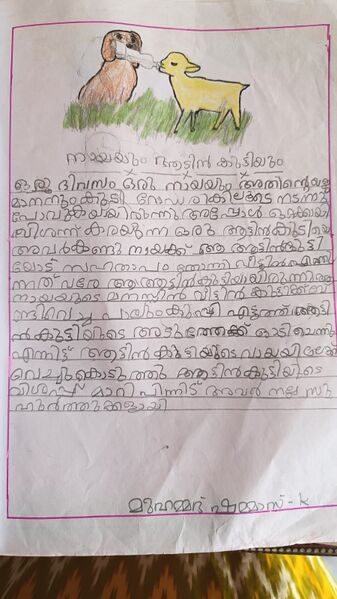 നായയും ആട്ടിൻ കുട്ടിയും
ഒരു ദിവസം ഒരു നായയും അതിന്റെയജ
മാനനും കൂടി റോഡരികിലൂടെ നടന്നു
പോവുകയായിരുന്നു അപ്പോൾ ഒറ്റക്കായി
വിശന്ന് കരയുന്ന ഒരു ആട്ടിൻകുട്ടിയെ
അവർകണ്ടു നായക്ക് ആ ആട്ടിൻകുട്ടി
യോട് സഹതാപം തോന്നി വീട്ടിൽ എത്തു
ന്നത് വരേ ആആട്ടിൻകുട്ടിയായിരുന്നു
നായയുടെ മനസ്സിൽ വീട്ടിൽ
പാലുംകുപ്പി എടുത്ത് ആട്ടി
ൻകുട്ടിയുടെ അടുത്തേക്ക് ഓടിചെന്നു
എന്നിട്ട് ആട്ടിൻകുട്ടിയുടെ വായയിലേക്ക്
വെച്ചുകൊടുത്തു ആട്ടിൻകുട്ടിയുടെ
വിശപ്പ് മാറി പിന്നീട് അവർ നല്ല സു
ഹൃർത്തുക്കളായി
മുഹമ്മദ് ഷമ്മാസ് - k